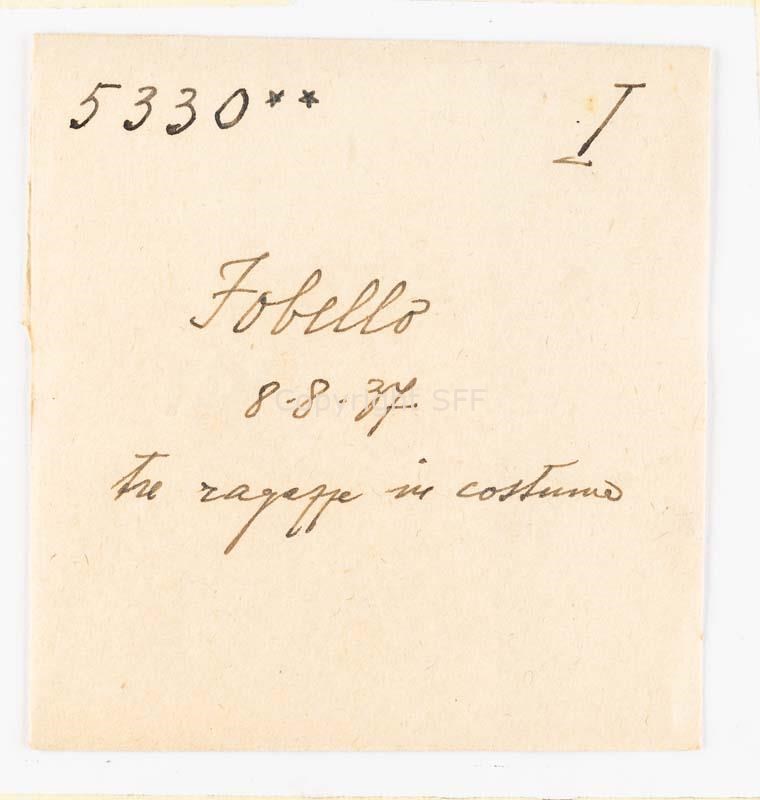 5330** I
Fobello
8-8-37.
Copyright SFF
tre ragazze in costume